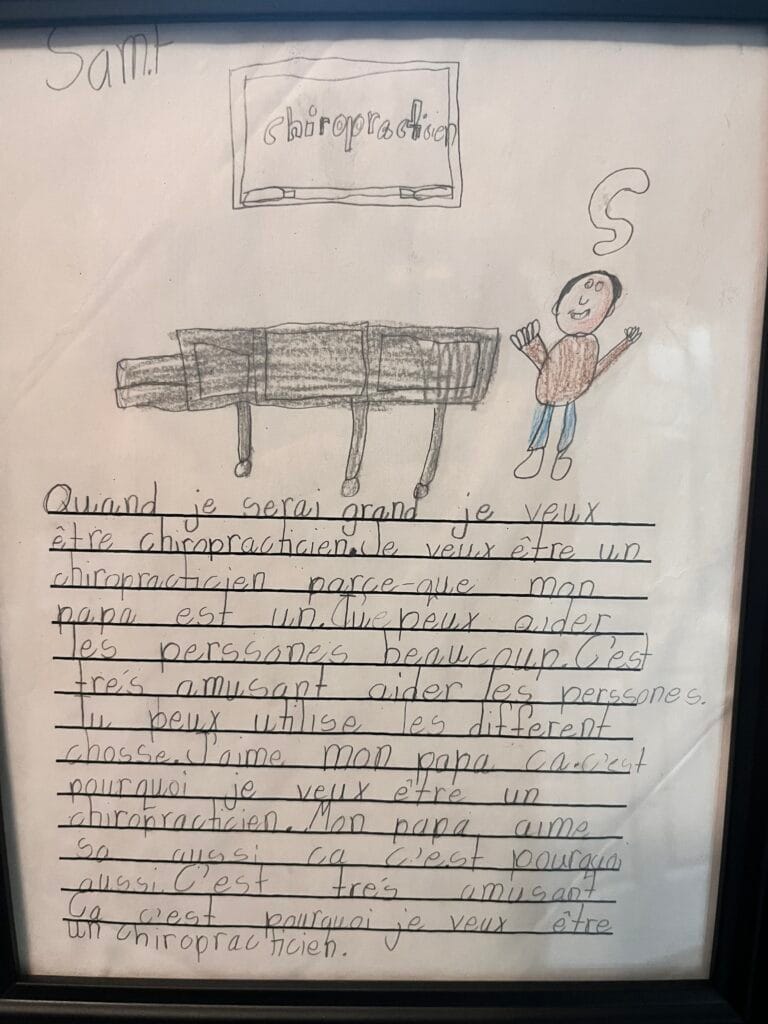 Sam.t
chiropracticien
S
Quand je serai grand je veux
être chiropracticien.Je veux être un
chiropracticien parce-que mon
papa est un. peux aider
les perssones beaucoup.C'est
trés amusant aider les perssones.
Tu peux utilise les different
chosse.J'aime mon papa ca.c'est
pourquoi je veux être un
chiropracticien.Mon papa aime
sa aussi ca c'est pourquoi
aussi.C'est trés amusant
Ca c'est pourquoi je veux être
un chiropracticien.